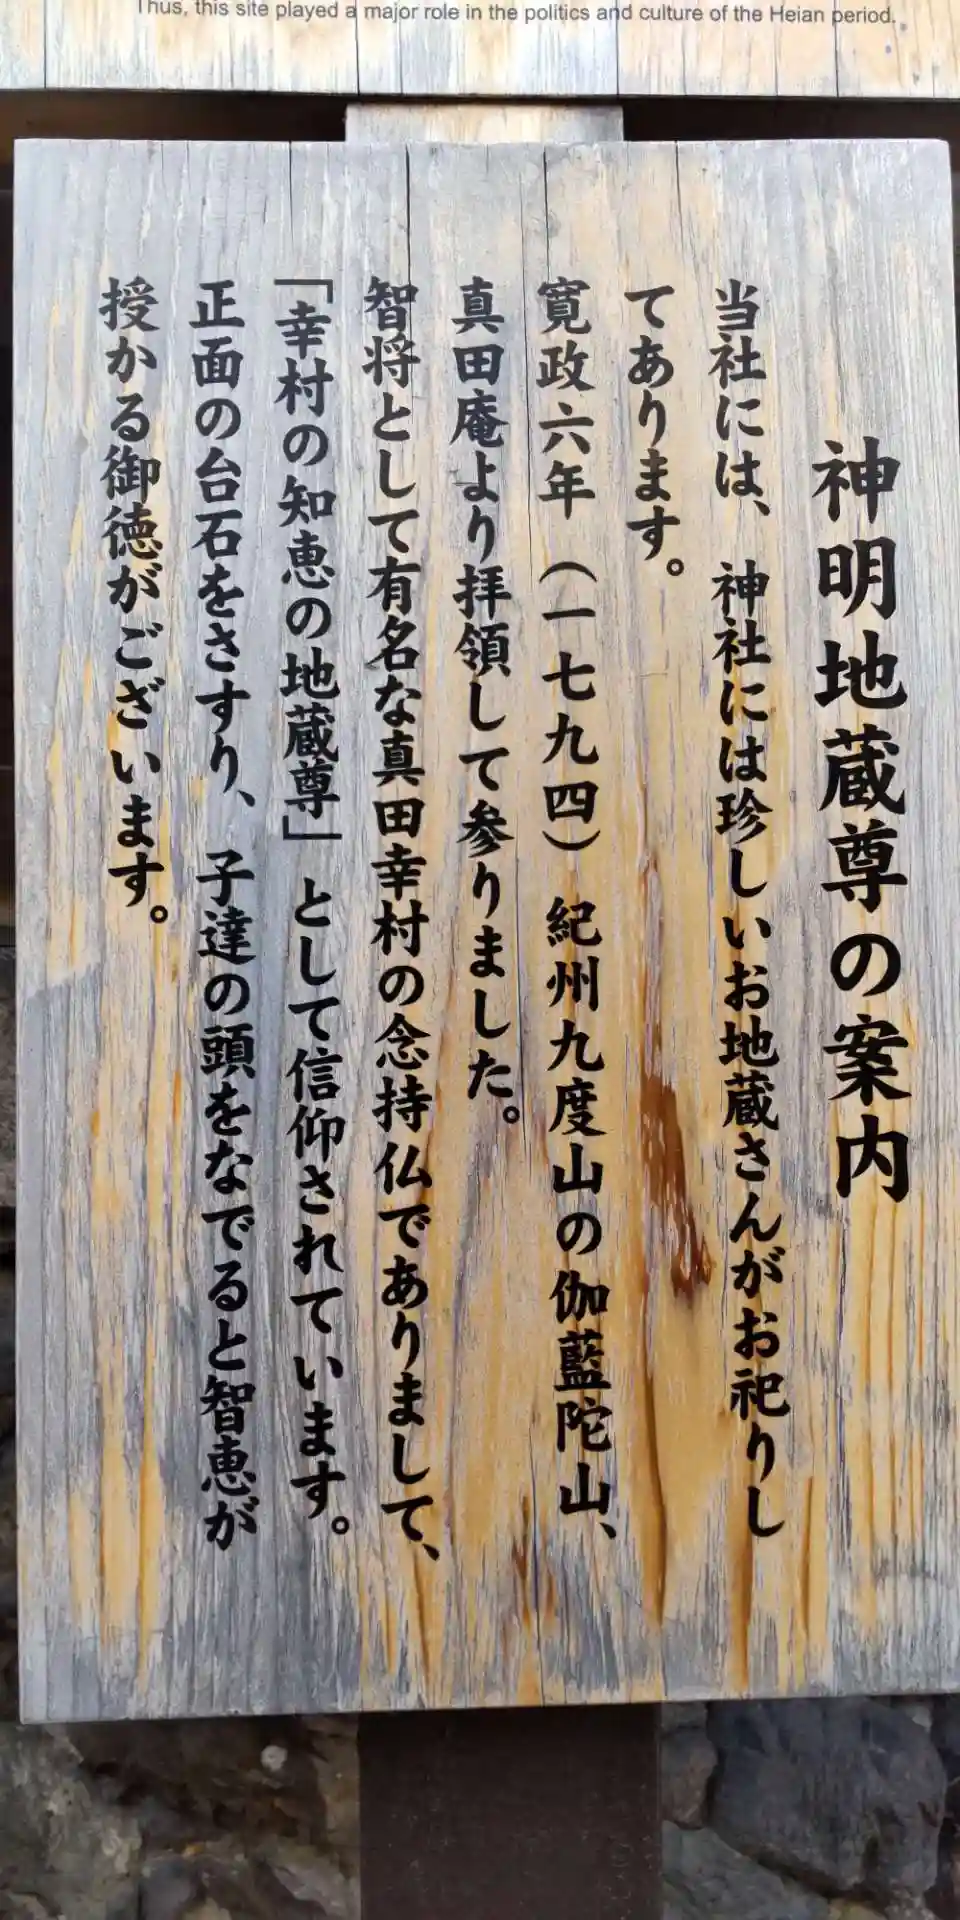 Thus, this site played a major role in the politics and culture of the Heian period.
神明地蔵尊の案内
当社には、神社には珍しいお地蔵さんがお祀りし
てあります。
寛政六年（一七九四）紀州九度山の伽藍陀山、
真田庵より拝領して参りました。
智将として有名な真田幸村の念持仏でありまして、
「幸村の知恵の地蔵尊」として信仰されています。
正面の台石をさすり、子達の頭をなでると智恵が
授かる御徳がございます。